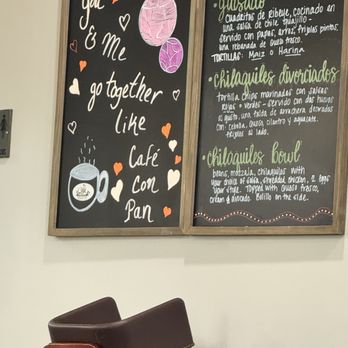 You
& Me
go together
like
Café
con
Pan
guisado
cuadritos de ribeye, cocinado en
una salsa de chile trujillo -
servido con papas, arroz, frijoles pintos,
una rebanada de queso fresco.
TORTILLAS: Maiz o Harina
chilaquiles divorciados
tortilla chips marinadas con salsas
rojas + verdes - servido con dos huevos
al gusto, una tajda de arrachera dorados
con cebolla, queso, cilantro y aguacate.
frijoles al lado.
chilaquiles bowl
beans, mozzarella, chilaquiles with
your choice of salsa, shredded chicken, 2 eggs
your style. Topped with queso fresco,
cream & avocado. Bolillo on the side.